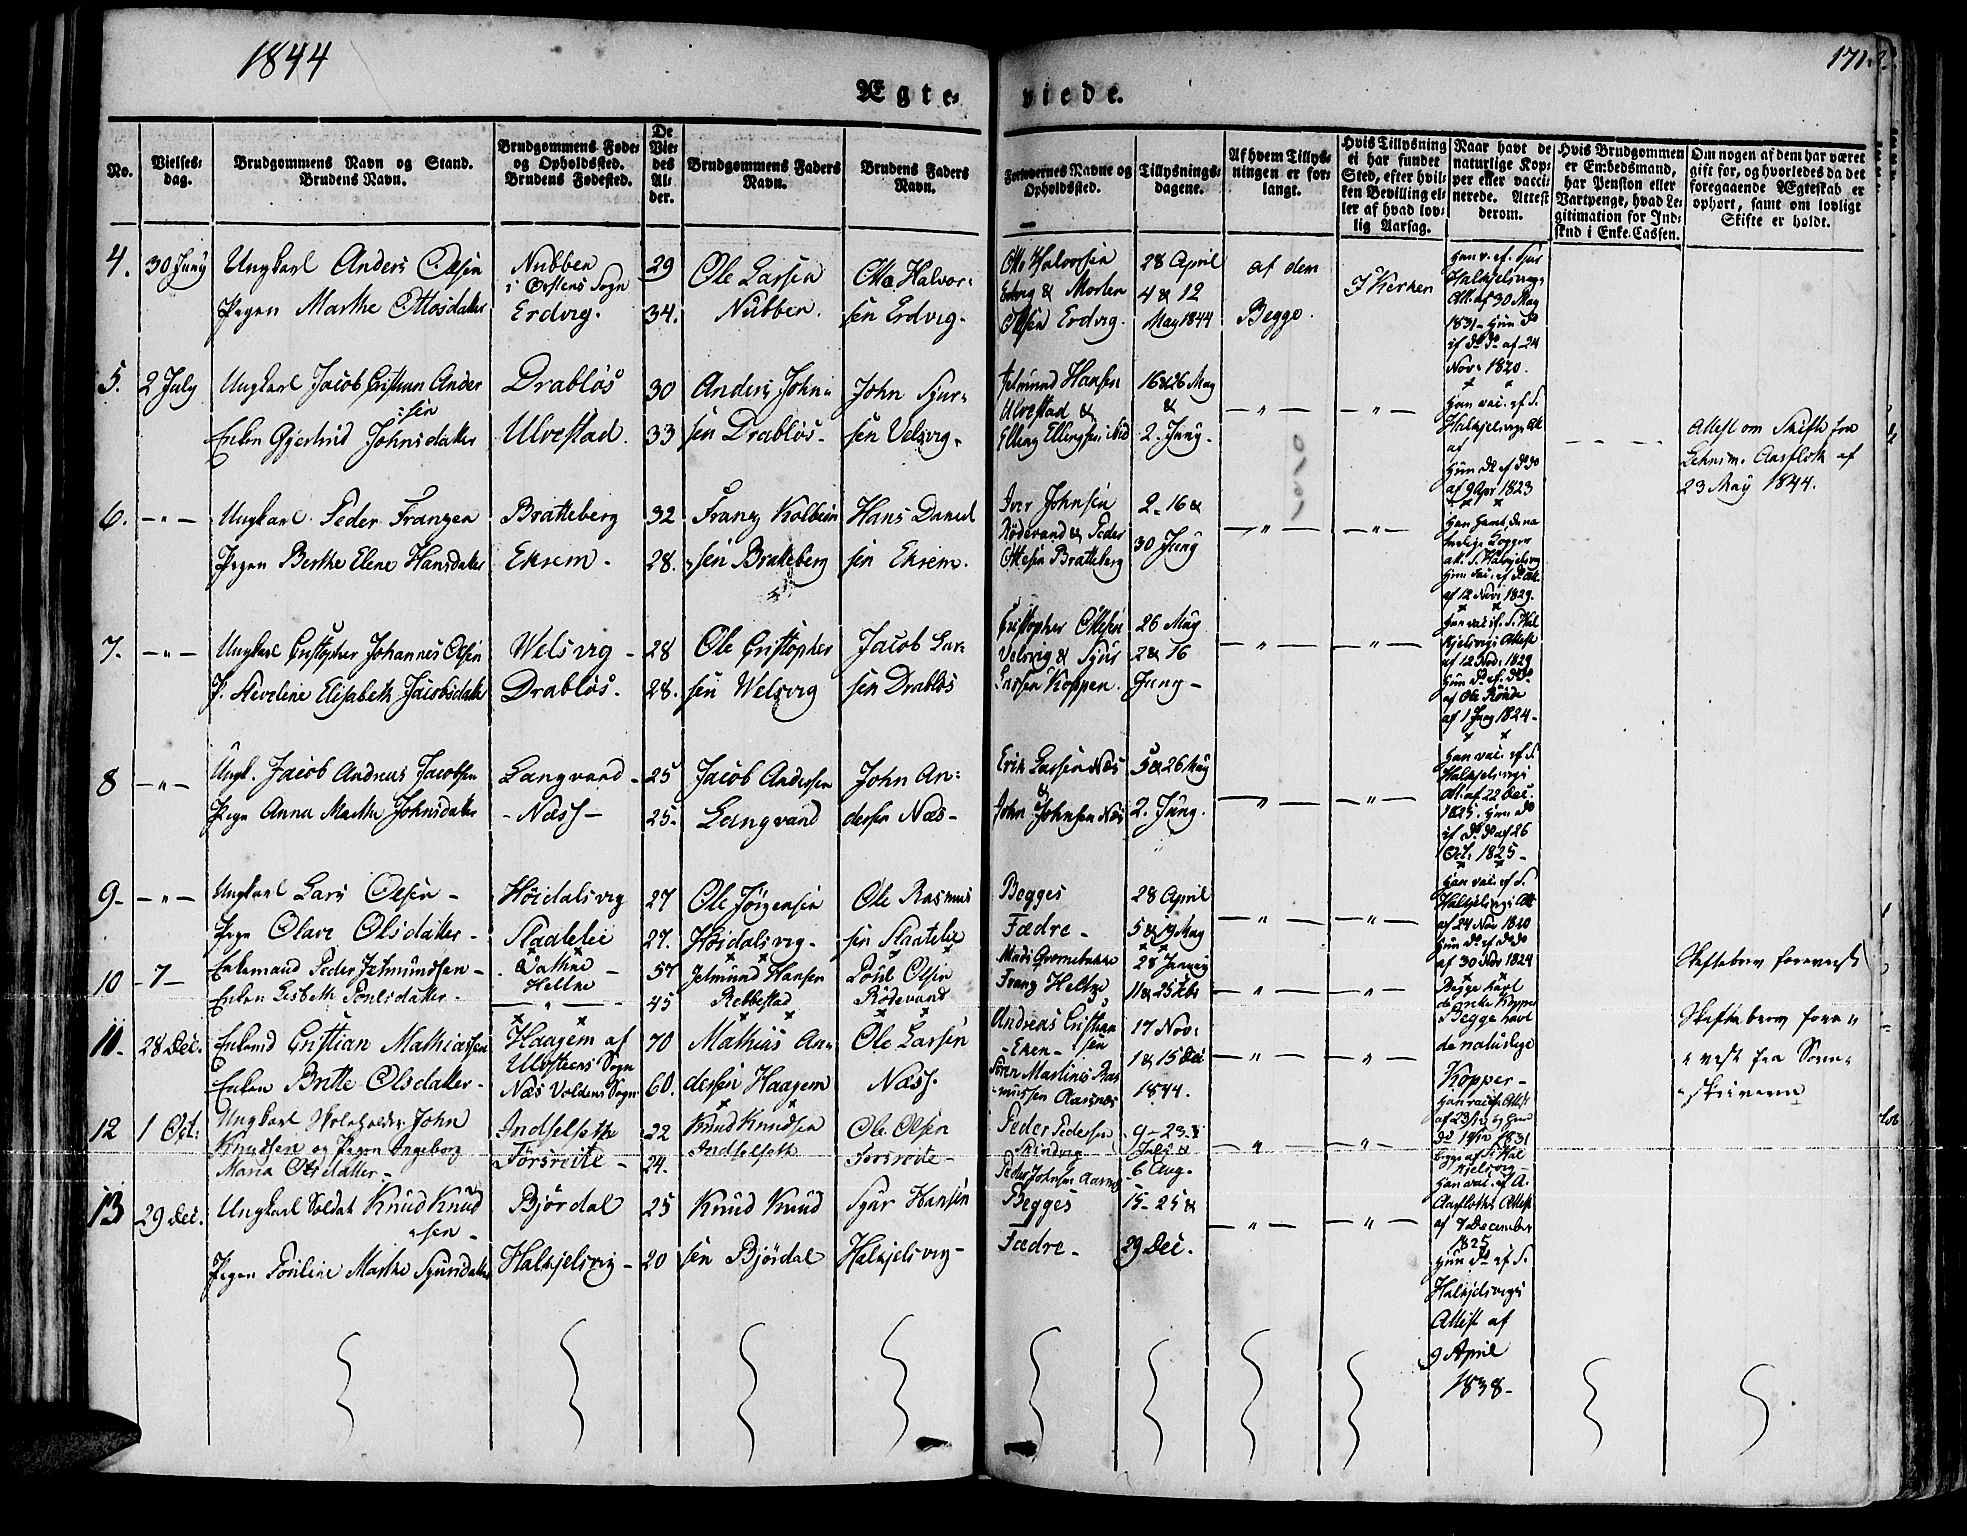 1844
171.
Ægte- viede.
No.
Vielses-
dag.
Brudgommens Navn og Stand.
Brudens Navn.
Brudgommens Føde-
og Opholdssted.
Brudens Fødested.
De
Vie-
des
Al-
der.
Brudgommens Faders
Navn.
Brudens Faders
Navn.
Forlovernes Navne og
Opholdssted.
Tillysnings-
dagene.
Af hvem Tillys-
ningen er for-
langt.
Hvis Tillysning
ei har fundet
Sted, efter hvil-
ken Bevilling el-
ler af hvad lov-
lig Aarsag.
Naar havt de
naturlige Kop-
per eller vacci-
nerede. Attest
derom.
Hvis Brudgommen
er Embedsmand,
har Pension eller
Vartpenge, hvad Le-
gitimation for Ind-
skud i Enke-Cassen.
Om nogen af dem har været
gift før, og hvorledes da det
foregaaende Ægteskab er
ophørt, samt om lovligt
Skifte er holdt.
4. 30 Juny
Ungkarl Anders Olsen
Pigen Marthe Ottosdatter
Nubben
i Ørstens Sogn
Erdvig.
29
34.
Ole Larsen
Nubben.
Otto Halvor-
sen Erdvig.
Otto Halvorsen
Erdvig & Morten
Olsen Erdvig.
28 April
4 & 12
May 1844
af dem
Begge.
I Kirken
Halkjelsvigs
Att. af 30 May
1831 - Hun do
af 24
Nov. 1820.
5. 2 July
Ungkarl Jacob Cristian Ander
-sen
Enken Gjertrud Johnsdatter
Drabløs
Ulvestad.
30
33
Anders John-
sen Drabløs-
John Sjur-
sen Velsvig-
Jetmund Hansen
Ulvestad &
16 & 26 May
&
2. Juny.
— " —
— " —
Han vac. ef. S.
Halkjelsvigs Att
af
af 9 Apr 1823
Attest om Skifte fra
Lehnsm. Aarfloth af
23 May 1844.
6. — " —
Ungkarl Peder Franzen
Pigen Berthe Elene Hansdatter
Bratteberg
Eksem-
32
28.
Franz Kolbein
-sen Bratteberg
Hans Daniel
sen Eksem.
Iver Johnsen
Rødevand & Peder
Ottesen Bratteberg
2. 16 &
30 Juny
— " —
— " —
af 12 Novr 1829.
7. — " —
Ungkarl Cristopher Johannes Olsen
P. Severine Elisabeth Jacobsdatter
Welsvig
Drabløs.
28
28.
Ole Cristopher
sen Welsvig
Jacob Lar-
sen Drabløs
Cristopher Ottesen
Velsvig & Sjur
Larsen Koppen.
26 May
2 & 16
Juny-
— " —
— " —
kjelsvigs Attest
af 12 Nov. 1829
af Ole Rønde
af 1 Juny 1824-
8 — " —
Ungk. Jacob Andreas Jacobsen
Pigen Anna Marthe Johnsdatter
Langvand
-Næss-
25
25-
Jacob Andersen
Langvand
John An-
dersen Næs-
Erik Larsen Næs
&
John Johnsen Næs
5 & 26 May
2. Juny.
— " —
— " —
Han vac. ef. S.
Halkjelsvigs
Att. af 22 Dec.
1825. Hun do
af 26
Oct. 1825-
9- — " —
Ungkarl Lars Olsen-
Pigen Olave Olsdatter-
Høidalsvig
Sladtelie
27
27.
Ole Jørgensen
Høidalsvig-
Ole Rasmus
sen Slaatelie
Begges
Fædre-
28 April
5 & 19 May
— " —
— " —
Han vac. ef. S.
Halkjelsvigs Att
af 24 Nov 1820
af 30 Nov 1824
10 -7-
Enkemand Peder Jetmundsen-
Enken Lisbeth Poulsdatter-
Vathne
Hellne
— " —
57
45
Jetmund Hansen
Rebbestad
Poul Olsen
Rødevand
Franz Heltze
28 January
11 & 25 Febr
— " —
— " —
Begge havt
de Kopper
Skiftebrev foreviist
11- 28 Dec.
Enkemd Cristian Mathiassen
Enken Britte Olsdatter-
Haagem af
Ulvsteens Sogn
Næs Voldens Sogn
70
60.
Mathias An-
dersen Haagem
Ole Larsen
Næss.
Andreas Cristian
-Eken- -sen
Søren Martinus Ras
-mussen Aarsnes
17 Nov.
1 & 15 Dec
1844.
— " —
"
Begge havt
de naturlige
Kopper-
Skiftebrev fore-
-viist fra Soren-
-skriveren
12 1 Oct.
Ungkarl Skoleholder John
Knudsen og Pigen Ingeborg
Maria Olsdatter-
Indselseth
Førsreite-
22
24.
Knud Knudsen
Indselseth
Ole Olsen
Førsreite-
Peder Pedersen
Peder Johnsen Aarnes
July &
6 Aug.
— " —
"
13 29 Dec.
Ungkarl Soldat Knud Knud
-sen-
Pigen Pouline Marthe Sjursdatter
Bjørdal
Halkjelsvig-
25
20
Knud Knud
sen Bjørdal
Sjur Hansen
Halkjelsvig-
Begges
Fædre-
15- 25 &
29 Dec.
— " —
— " —
Han vac. ef. A.
Aarfloths Attest
af 7 December
1825
Hun do ef. S.
Halkjelsvigs
Attest af
9 April
1838-